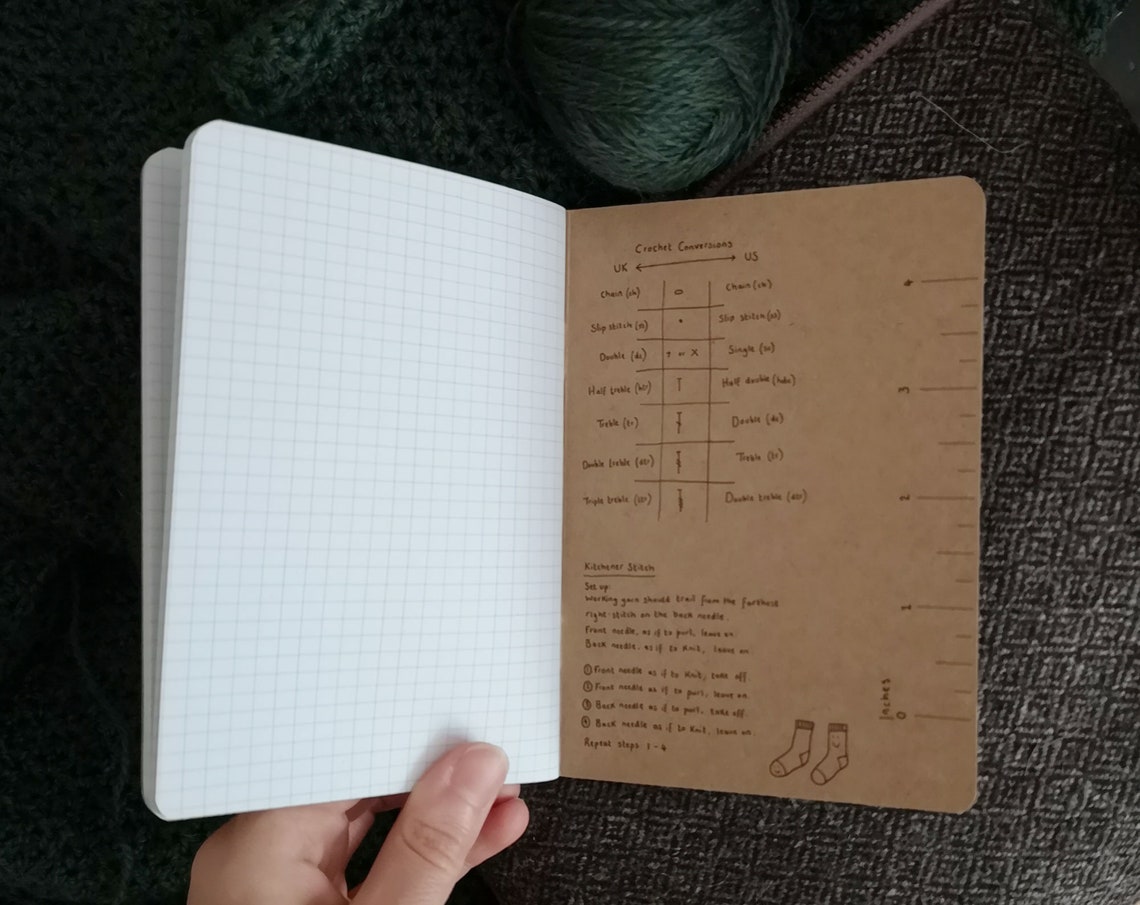 Crochet Conversions
UK US
Chain (ch) Chain (ch)
Slip stitch (ss) Slip stitch (ss)
Double (dc) + or X Single (sc)
Half treble (htr) Half double (hdc)
Treble (tr) Double (dc)
Double treble (dtr) Treble (tr)
Triple treble (ttr) Double treble (dtr)
Kitchener Stitch
Set up:
Working yarn should trail from the farthest
right-stitch on the back needle.
Front needle, as if to purl, leave on.
Back needle, as if to knit, leave on.
① Front needle as if to knit, take off.
② Front needle as if to purl, leave on.
③ Back needle as if to purl, take off.
④ Back needle as if to knit, leave on.
Repeat steps 1-4
4
3
2
1
0
Inches